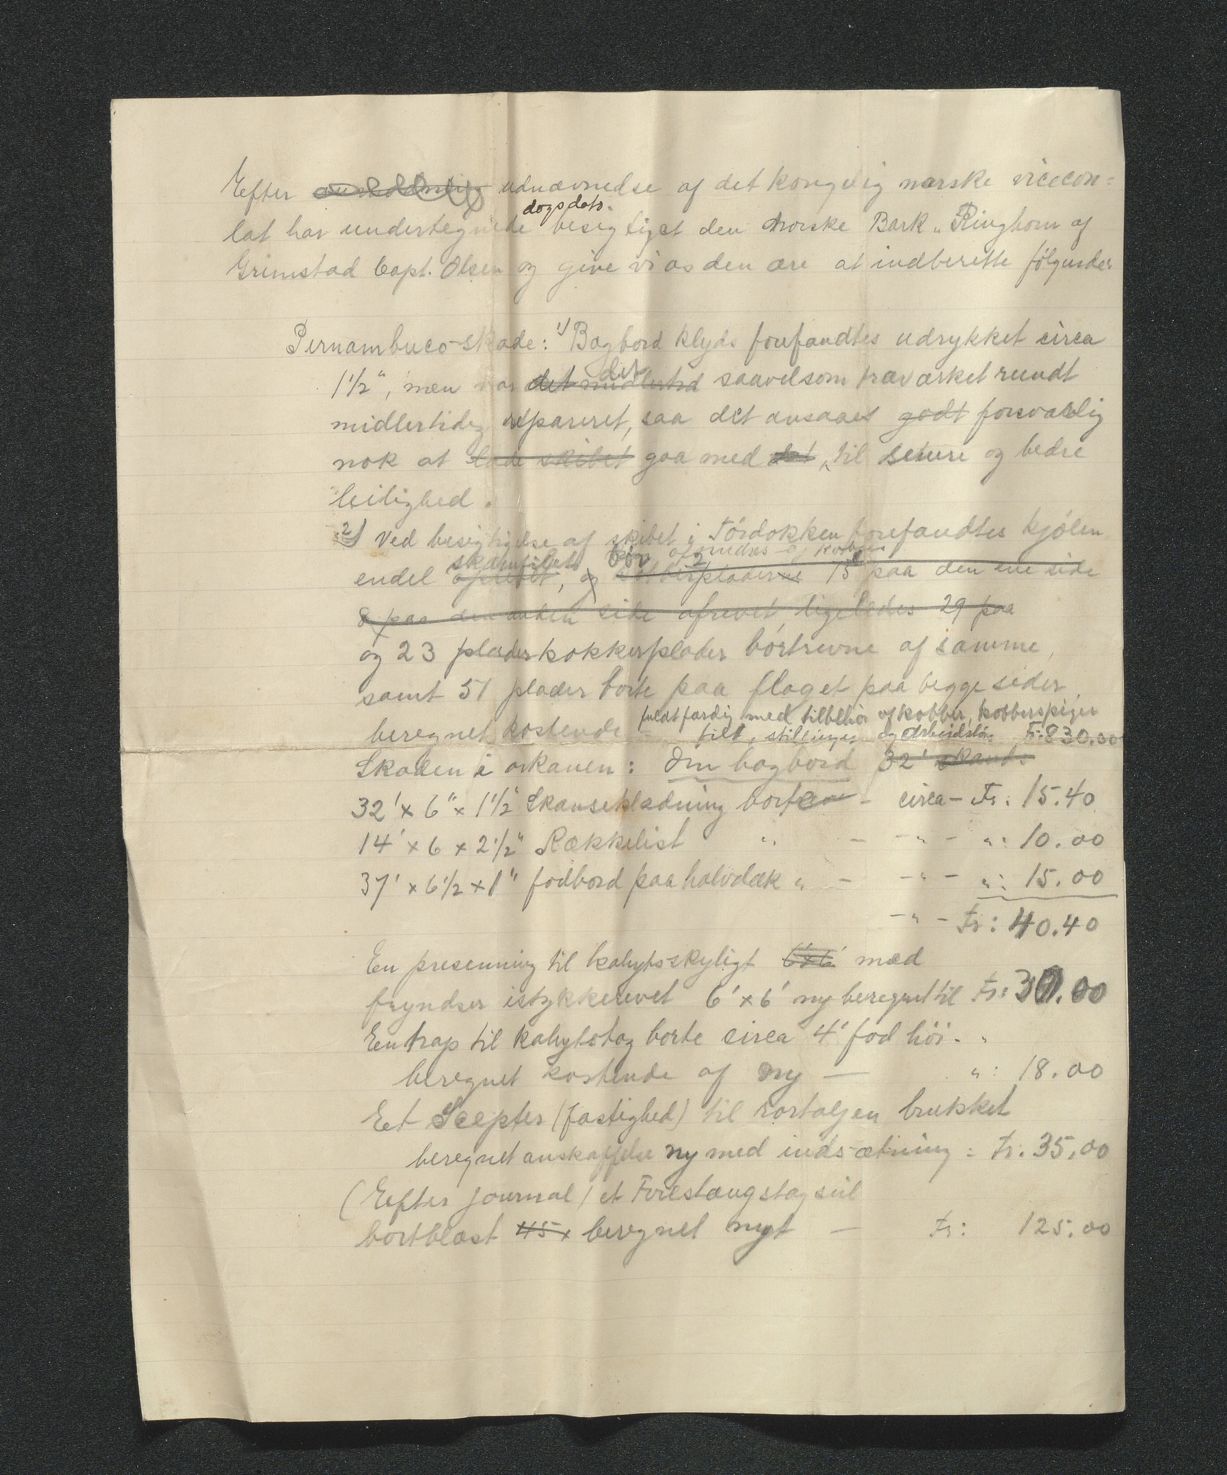 Efter udnævnelse af det kongelig norske vicecon=
dags dato
lat har undertegnede besigtiget den norske Bark „Ringhorn af
Grimstad Capt. Olsen og give vi os den ære at indberette følgende
Pernambuco-skade: 1) Bagbord klyds forefandtes udrykket circa
det
1½", men var det midlertid saavelsom træværket rundt
midlertidig repareret, saa det ansaaes godt forsvarlig
nok at lade skibet gaa med det til senere og bedre
leilighed.
2) Ved besigtigelse af skibet i Tørdokken forefandtes kjølen
skamfilet
endel oprevet, og 15 paa den ene side
8 paa den anden side afrevet, ligeledes 29 paa
og 23 plader kokkerplader bortrevne af samme,
samt 51 plader borte paa flaget paa begge sider,
fuldt færdig med tilbehør af kobber, kobberspiger
beregnet kostende filt, stillinger og Arbeidsløn. Fr: 830.00
Skaden i orkanen: Om bagbord 32' skant.
32' x 6" x 1½" Skanseklædning borte - circa - Fr: 15.40
14' x 6 x 2½" Rækkelist " - - " - ": 10.00
37' x 6½ x 1" fodbord paa halvdæk " - - " - ": 15.00
- " - Fr: 40.40
En presenning til kahytsskyligt 6x6 med
fryndser istykkerrevet 6' x 6' ny beregnet til Fr: 30.00
Een trap til kahytstag borte circa 4' fod høi. "
beregnet kostende af ny — ": 18.00
Et Scepter (fastighed) til rortaljen brukket
beregnet anskaffelse ny med indsætning: Fr. 35.00
(Eefter journal) et Forestængstagseil
bortblæst 45x beregnet nyt — Fr: 125.00